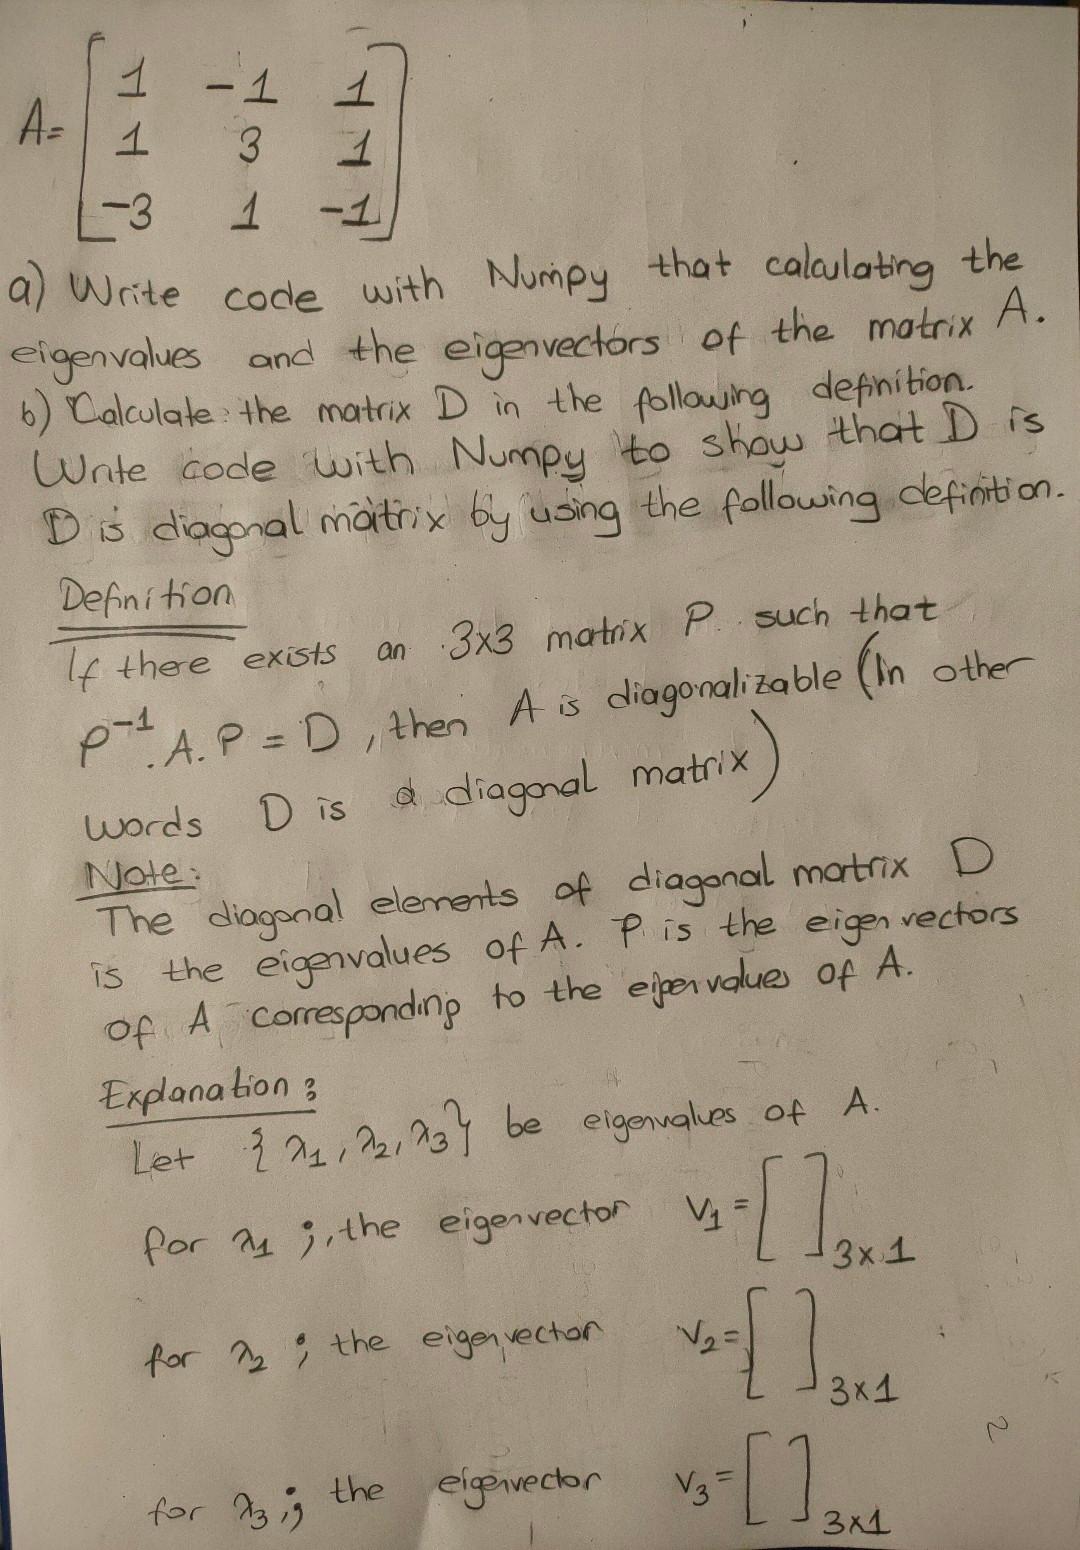 A= [ 1 -1 1
1 3 1
-3 1 -1 ]
a) Write code with Numpy that calculating the
eigenvalues and the eigenvectors of the matrix A.
b) Calculate the matrix D in the following definition.
Write code with Numpy to show that D is
D is diagonal matrix by using the following definition.
Definition
If there exists an 3x3 matrix P such that
P⁻¹.A.P = D, then A is diagonalizable (In other
words D is a diagonal matrix)
Note:
The diagonal elements of diagonal matrix D
is the eigenvalues of A. P is the eigen vectors
of A corresponding to the eigenvalues of A.
Explanation:
Let {λ₁, λ₂, λ₃} be eigenvalues of A.
for λ₁ ; the eigenvector V₁ = [ ]₃ₓ₁
for λ₂ ; the eigenvector V₂ = [ ]₃ₓ₁
for λ₃ ; the eigenvector V₃ = [ ]₃ₓ₁